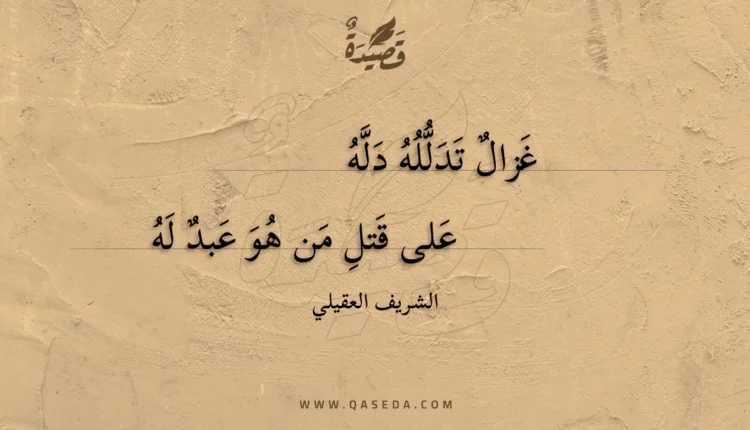 قَصِيدَةٌ
غَزالٌ تَدَلُّلُهُ دَلَّهُ
عَلى قَتلِ مَن هُوَ عَبدٌ لَهُ
الشريف العقيلي
WWW.QASEDA.COM